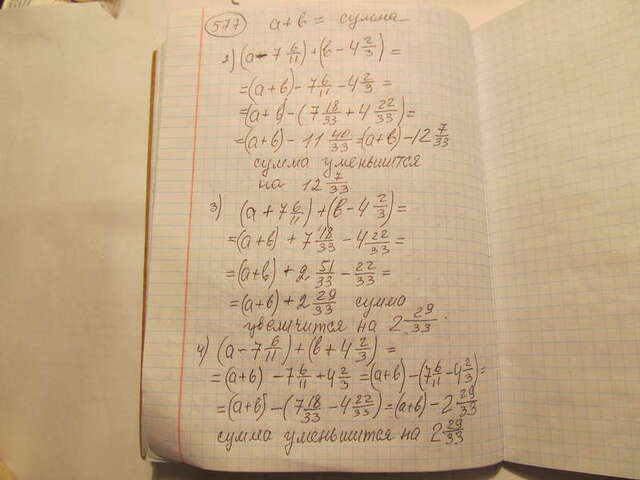 577 a+b = сумма
2) (a - 7 6/11) + (b - 4 2/3) =
= (a+b) - 7 6/11 - 4 2/3 =
= (a+b) - (7 18/33 + 4 22/33) =
= (a+b) - 11 40/33 = (a+b) - 12 7/33
сумма уменьшится
на 12 7/33
3) (a + 7 6/11) + (b - 4 2/3) =
= (a+b) + 7 18/33 - 4 22/33 =
= (a+b) + 2 51/33 - 22/33 =
= (a+b) + 2 29/33 сумма
увеличится на 2 29/33.
4) (a - 7 6/11) + (b + 4 2/3) =
= (a+b) - 7 6/11 + 4 2/3 = (a+b) - (7 6/11 - 4 2/3) =
= (a+b) - (7 18/33 - 4 22/33) = (a+b) - 2 29/33
сумма уменьшится на 2 29/33